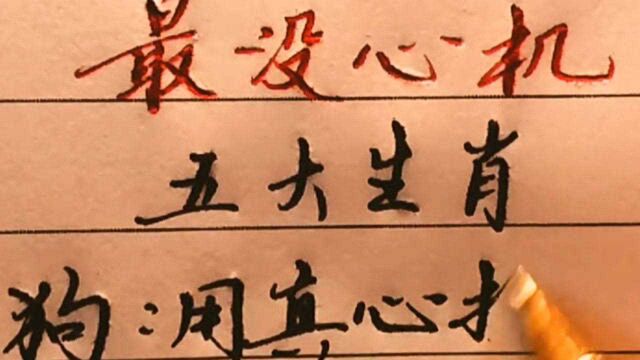 最没心机
五大生肖
狗:用真心